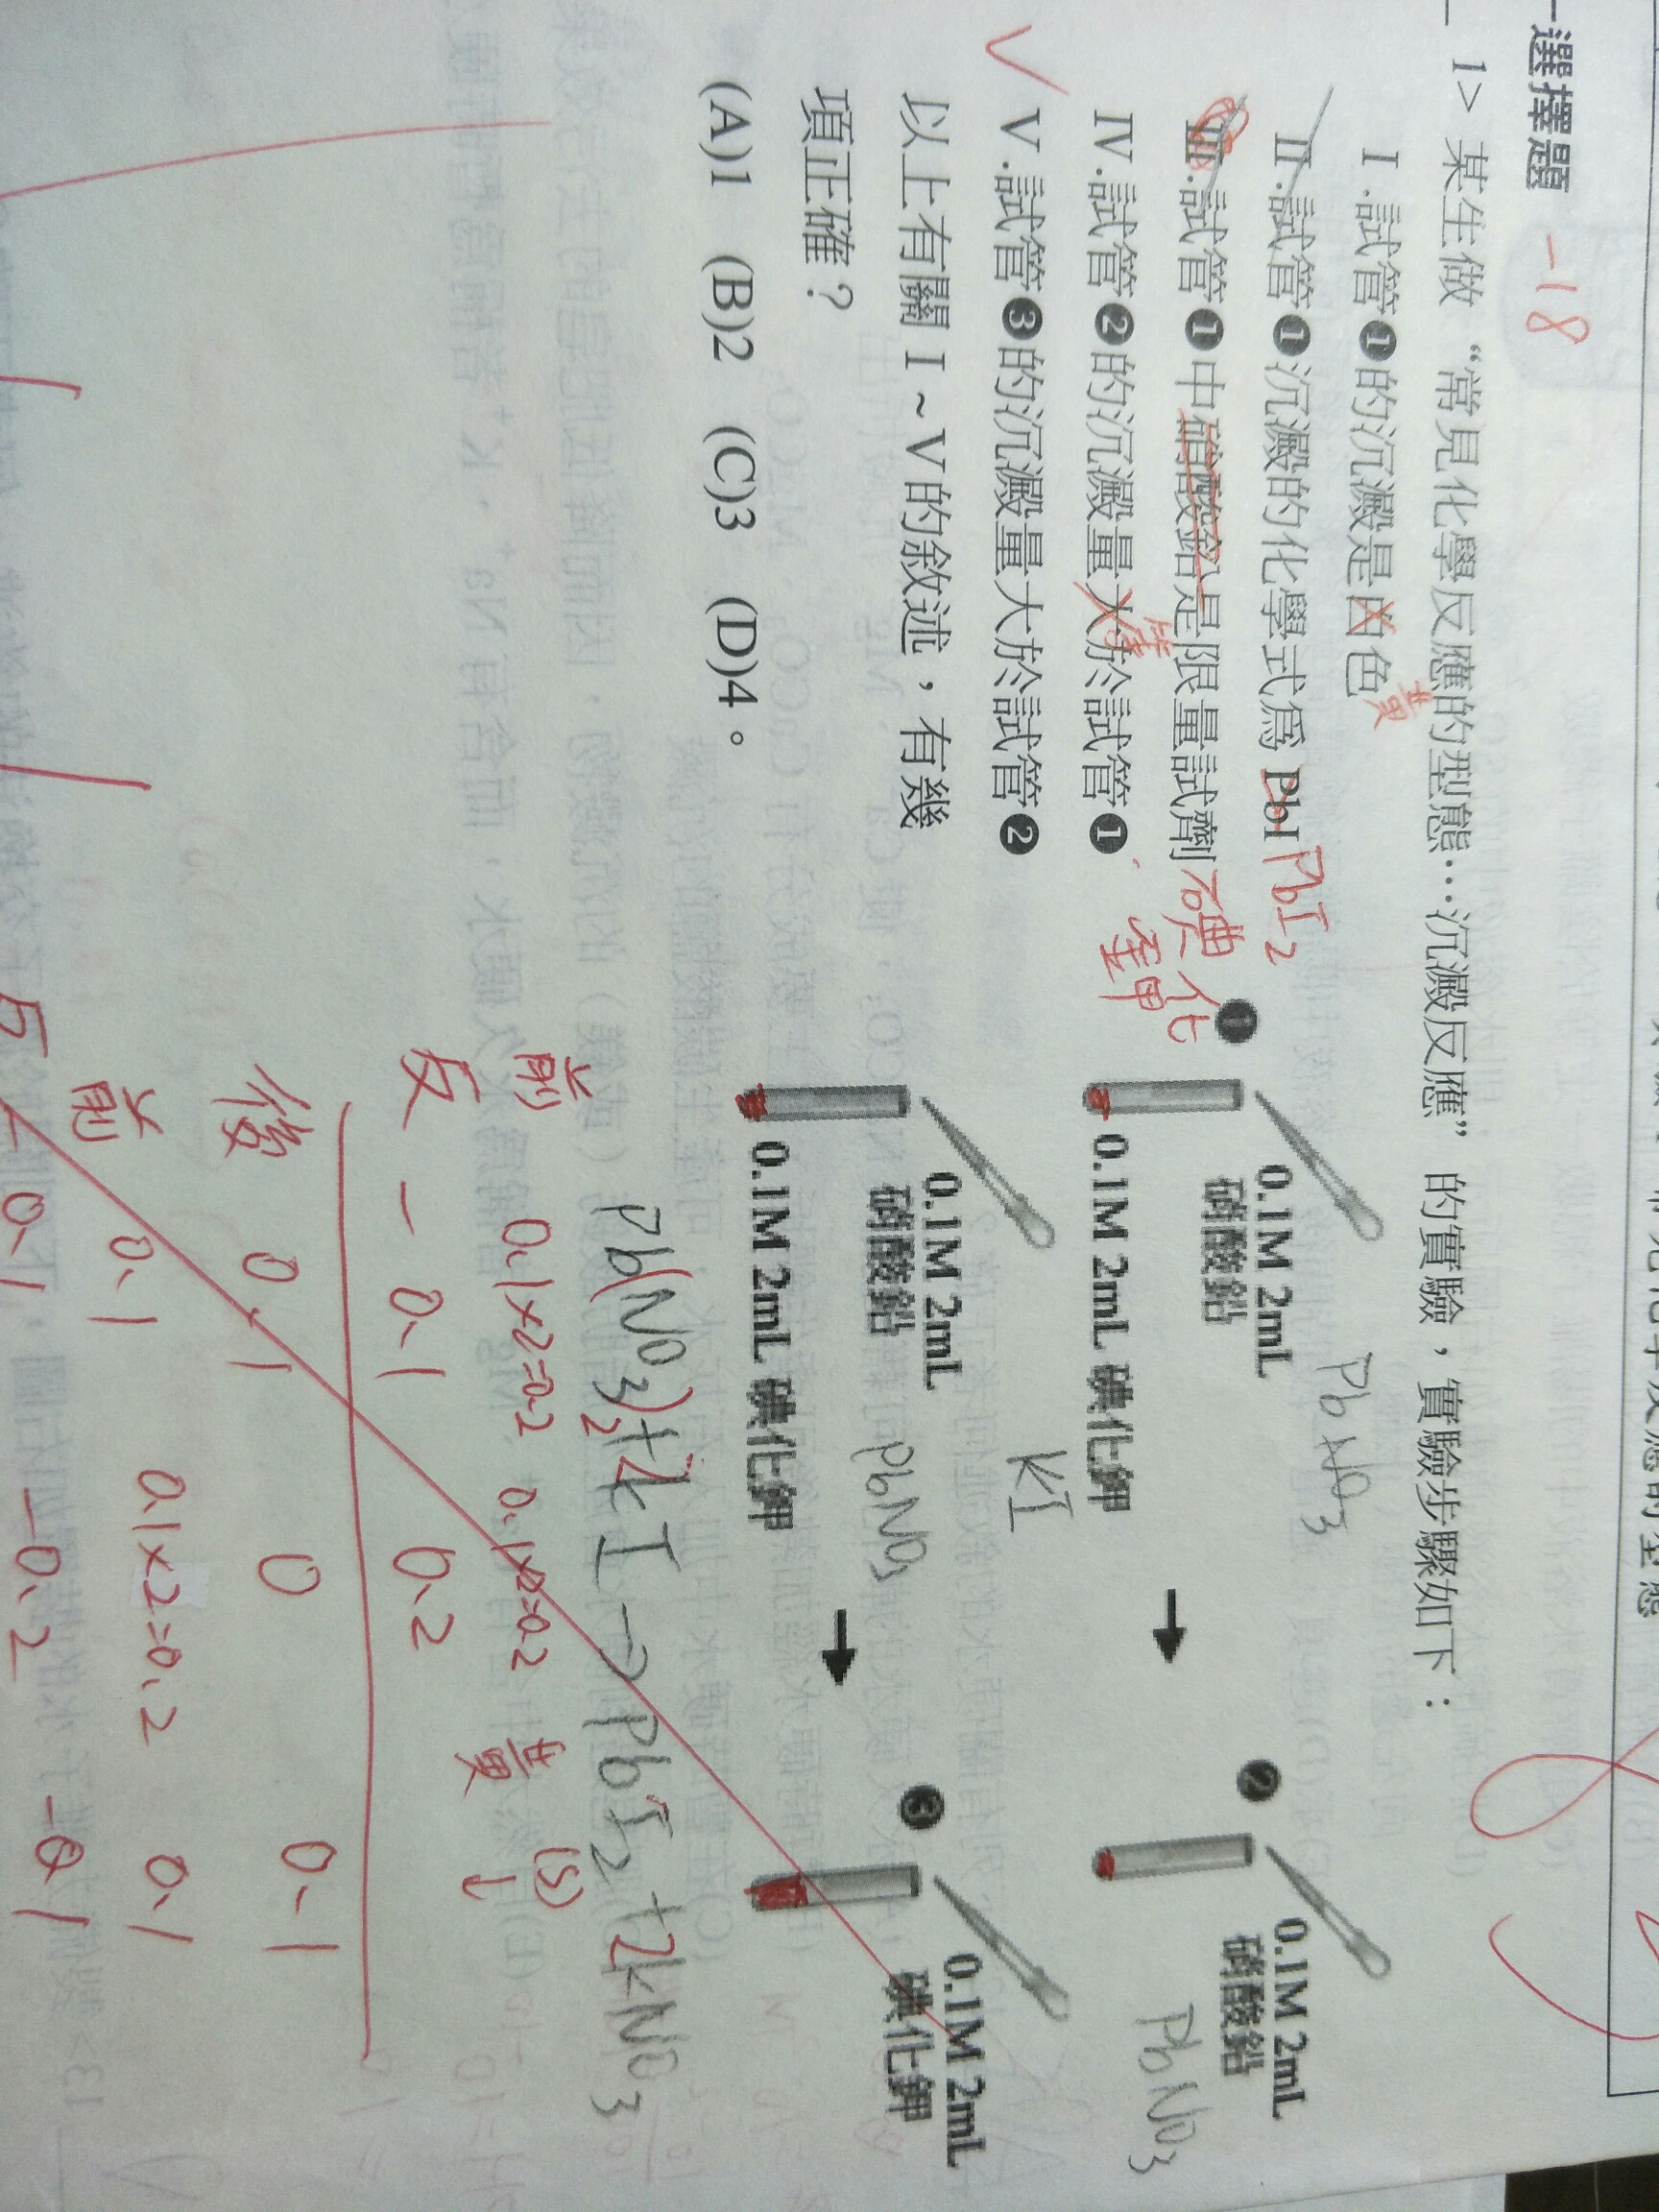 選擇題 -18
1> 某生做 “常見化學反應的型態…沉澱反應” 的實驗，實驗步驟如下：
I .試管❶的沉澱是凶色 黃
II .試管❶沉澱的化學式為 PbI PbI2
III .試管❶中硝酸鉛是限量試劑 碘化鉀
IV .試管❷的沉澱量大於試管❶ 等
V .試管❸的沉澱量大於試管❷
以上有關 I ~ V 的敘述，有幾
項正確？
(A)1 (B)2 (C)3 (D)4。
❶
0.1M 2mL
硝酸鉛
PbNO3
0.1M 2mL 碘化鉀
KI
❷
0.1M 2mL
硝酸鉛
PbNO3
0.1M 2mL
硝酸鉛
PbNO3
0.1M 2mL 碘化鉀
❸
0.1M 2mL
碘化鉀
Pb(NO3)2+2kI→PbI2+2kNO3
黃 (s) ↓
前 0.1×2=0.2 0.1×2=0.2
反 - 0.1 0.2
後 0.1 0 0.1
前 0.1 0.1×2=0.2 0.1
反 0.1 -0.2 -0.1